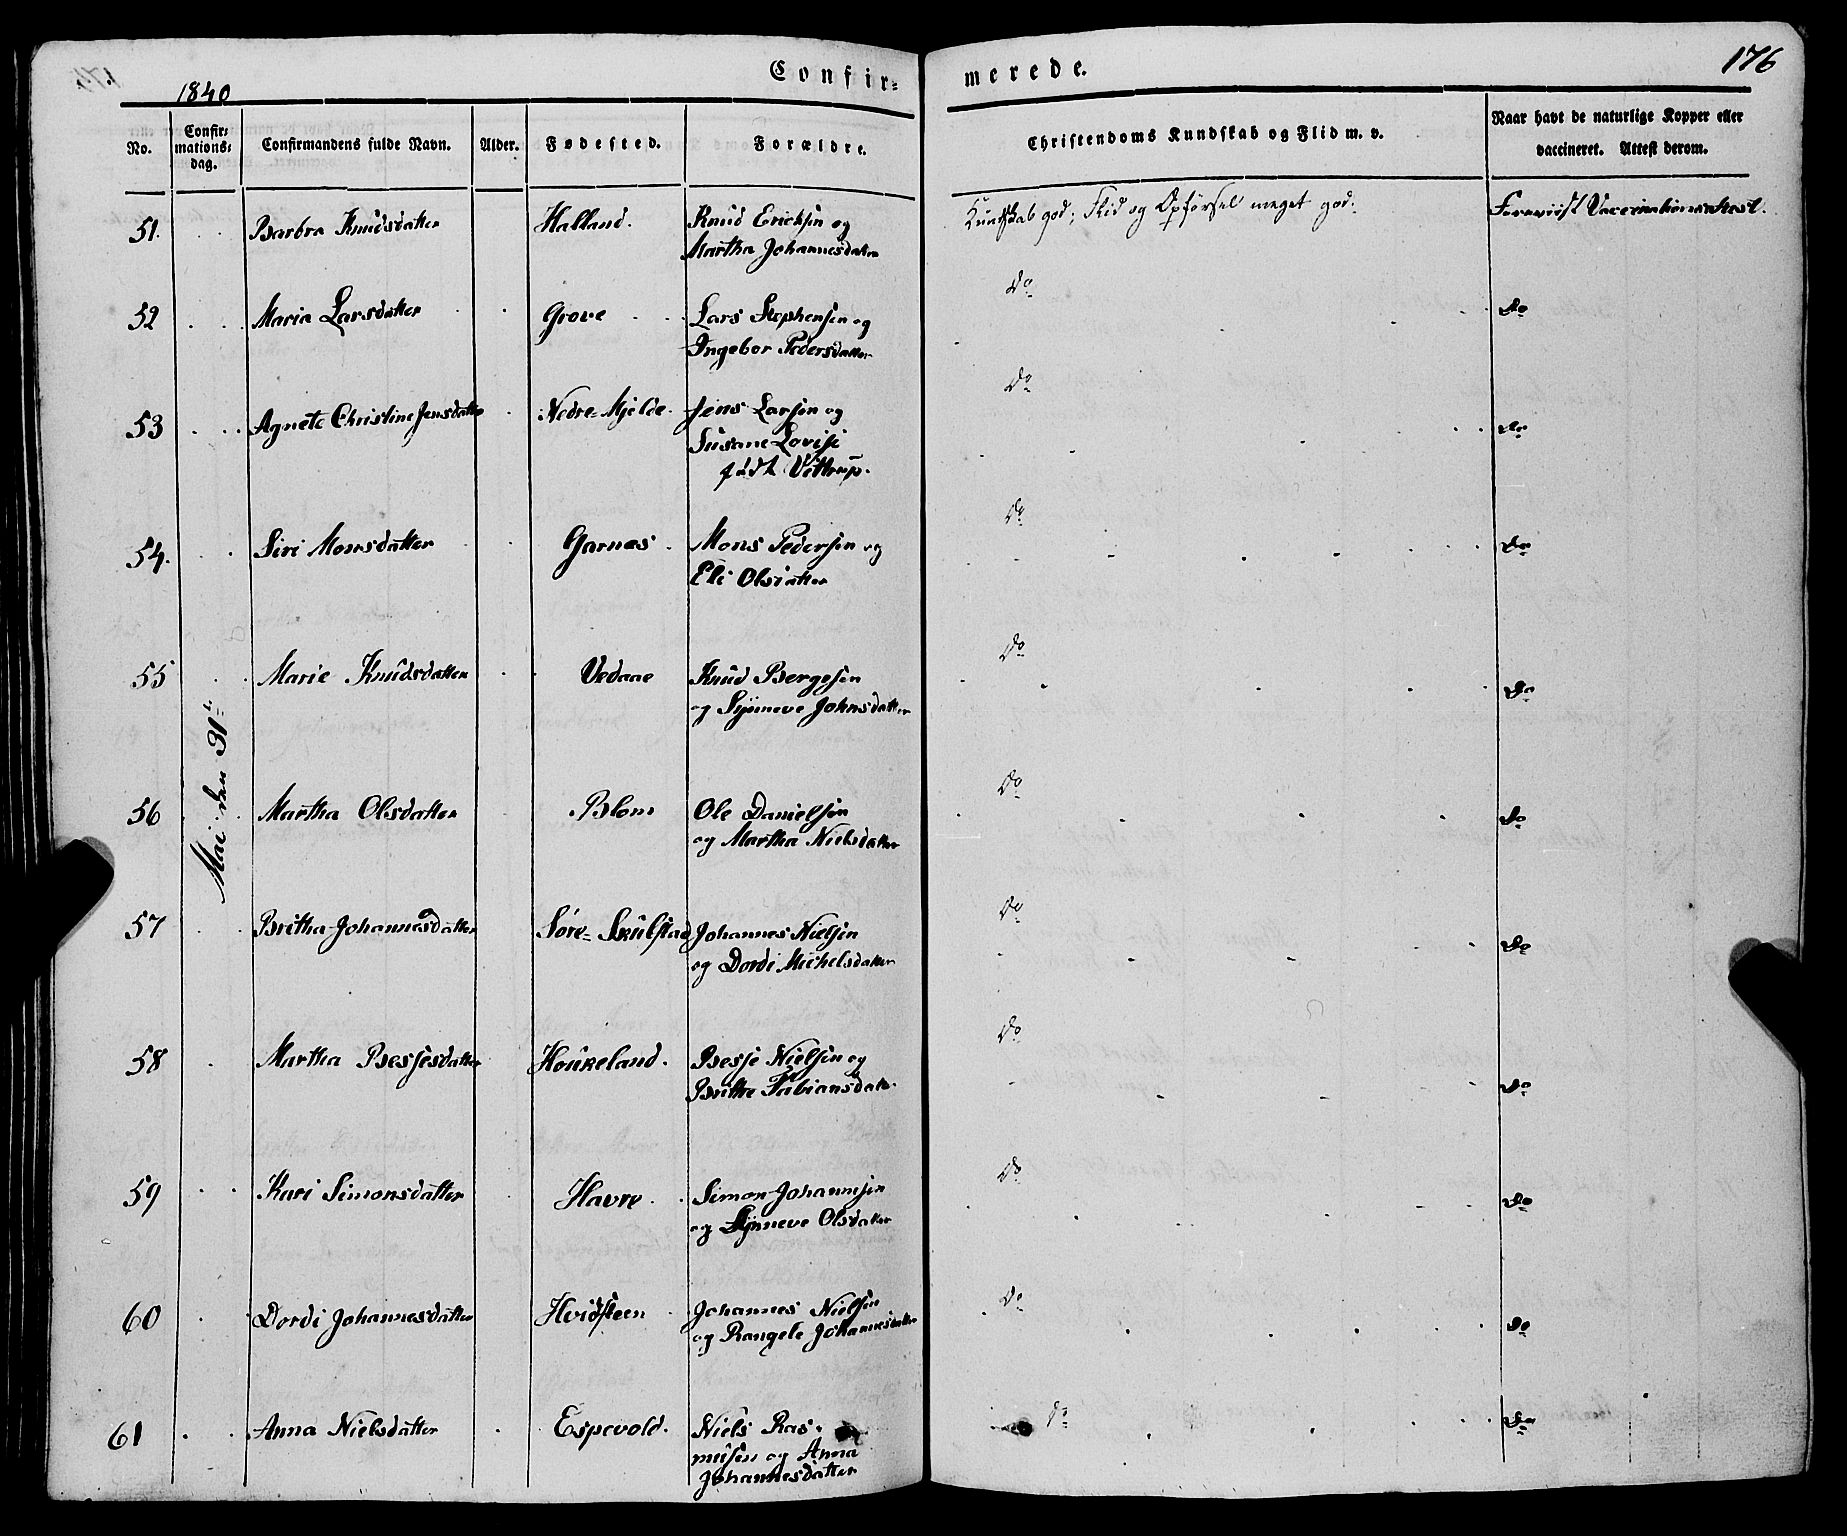 176
1840
Confir=
merede.
No. Confir= mations= dag. Confirmandens fulde Navn. Alder. Fødested. Forældre. Christendoms Kundskab og Flid m. v. Naar havt de naturlige Kopper eller vaccineret. Attest derom.
51. Barbra Knudsdatter Halland. Knud Ericksen og Kundskab god; Flid og Opførsel meget god. Foreviist Vaccinationsattest.
Martha Johannesdatter
52 Maria Larsdatter Grove Lars Stephensen og Do Do
Ingebor Pedersdatter
53 Agnete Christine Jensdatter Nedre=Mjelde. Jens Larsen og Do Do
Susane Lovise
født Vittrup.
54. Siri Monsdatter Garnæs. Mons Pedersen og Do Do
Eli Olsdatter
55 Marie Knudsdatter Vedaae Knud Bergesen Do Do
og Synneve Johnsdatter
Mai den 31te
56 Martha Olsdatter Blom Ole Danielsen Do Do
og Martha Nielsdatter
57 Britha Johannesdatter Søre=Skulstad Johannes Nielsen Do Do
og Dordi Michelsdatter
58 Martha Bessesdatter Houkeland. Besse Nielsen og Do Do
Britha Fabiansdatr.
59 Kari Simonsdatter Havre. Simon Johannesen Do Do
og Synneve Olsdatter
60 Dordi Johannesdatter Hvidsteen Johannes Nielsen Do Do
og Rangele Johannesdatter
61 Anna Nielsdatter Espevold. Niels Ras= Do Do
musen og Anna
Johannesdatter